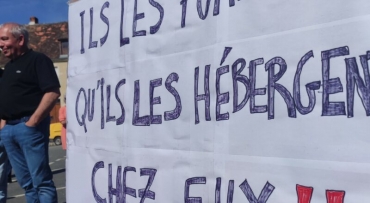 ILS LES
QU'ILS LES HÉBERGENT
CHEZ EUX !!